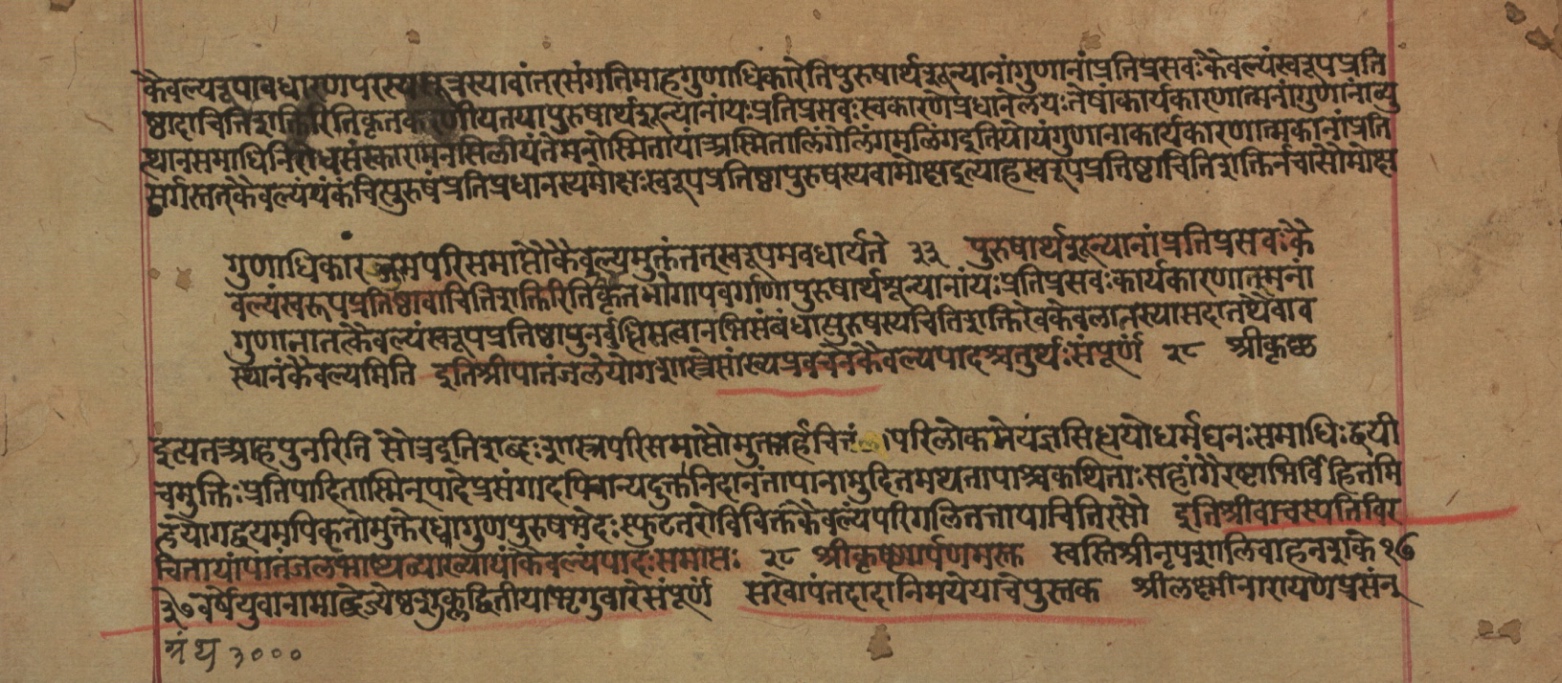 कैवल्यरूपावधारणपरस्यसूत्रस्यावांतरसंगतिमाहगुणाधिकारेतिपुरुषार्थशून्यानांगुणानांप्रतिप्रसवःकैवल्यंस्वरूपप्रति
ष्ठादाचितिशक्तिरितिकृतकरणीयतयापुरुषार्थशून्यानांयःप्रतिप्रसवःस्वकारणेप्रधानेलयःतेषांकार्यकारणात्मनांगुणानांव्यु
त्थानसमाधिनिरोधसंस्कारामनसिलीयंतेमनोस्मितायांअस्मितालिंगेलिंगमलिंगइतियोयंगुणानाकार्यकारणात्मकानांप्रति
सर्गस्ततकैवल्यंयंकंचित्पुरुषंप्रतिप्रधानस्यमोक्षःस्वरूपप्रतिष्ठापुरुषस्यवामोक्षइत्याहस्वरूपप्रतिष्ठाचितिशक्तिर्नचासोमोक्ष
गुणाधिकारक्रमपरिसमाप्तौकैवल्यमुक्तंततस्वरूपमवधार्यते ३३ पुरुषार्थशून्यानांप्रतिप्रसवःकै
वल्यंस्वरूपप्रतिष्ठावाचितिशक्तिरितिकृतभोगापवर्गाणापुरुषार्थशून्यानांयःप्रतिप्रसवःकार्यकारणात्मनां
गुणानातत्कैवल्यंस्वरूपप्रतिष्ठापुनर्बुद्धिसत्वानभिसंबंधात्पुरुषस्यचितिशक्तिरेवकेवलातस्यासदातथैवाव
स्थानंकैवल्यमिति इतिश्रीपातंजलेयोगशास्त्रेसांख्यप्रवचनेकैवल्यपादश्चतुर्थःसंपूर्ण २८ श्रीकृष्ण
इत्यतआहपुनरिति सोत्रइतिशब्दःशास्त्रपरिसमाप्तौमुक्तयर्हचित्तं परिलोकमेयज्ञसिद्धयोधर्मघनःसमाधिःद्वयी
चमुक्तिःप्रतिपादितास्मिन्पादेप्रसंगादपिचान्यदुक्तंनिदानंतापानामुदितमथतापाश्चकथिताःसहांगैरष्टाभिर्विहितमि
हयोगद्वयमपिकृतोमुक्तेरध्वागुणपुरुषभेदःस्फुटतरोविविक्तंकैवल्यंपरिगलिततापाचितिरसौ इतिश्रीवाचस्पतिविर
चितायांपातंजलभाष्यव्याख्यायांकैवल्यंपादःसमाप्तः २८ श्रीकृष्णार्पणमस्त स्वस्तिश्रीनृपशालिवाहनशके१७
३७वर्षेयुवानामाब्देज्येष्ठशुक्लद्वितीयाभृगुवारेसंपूर्ण सखोपंतदादानिमयेयाचेपुस्तक श्रीलक्ष्मीनारायणप्रसंन्
ग्रंथ ३०००